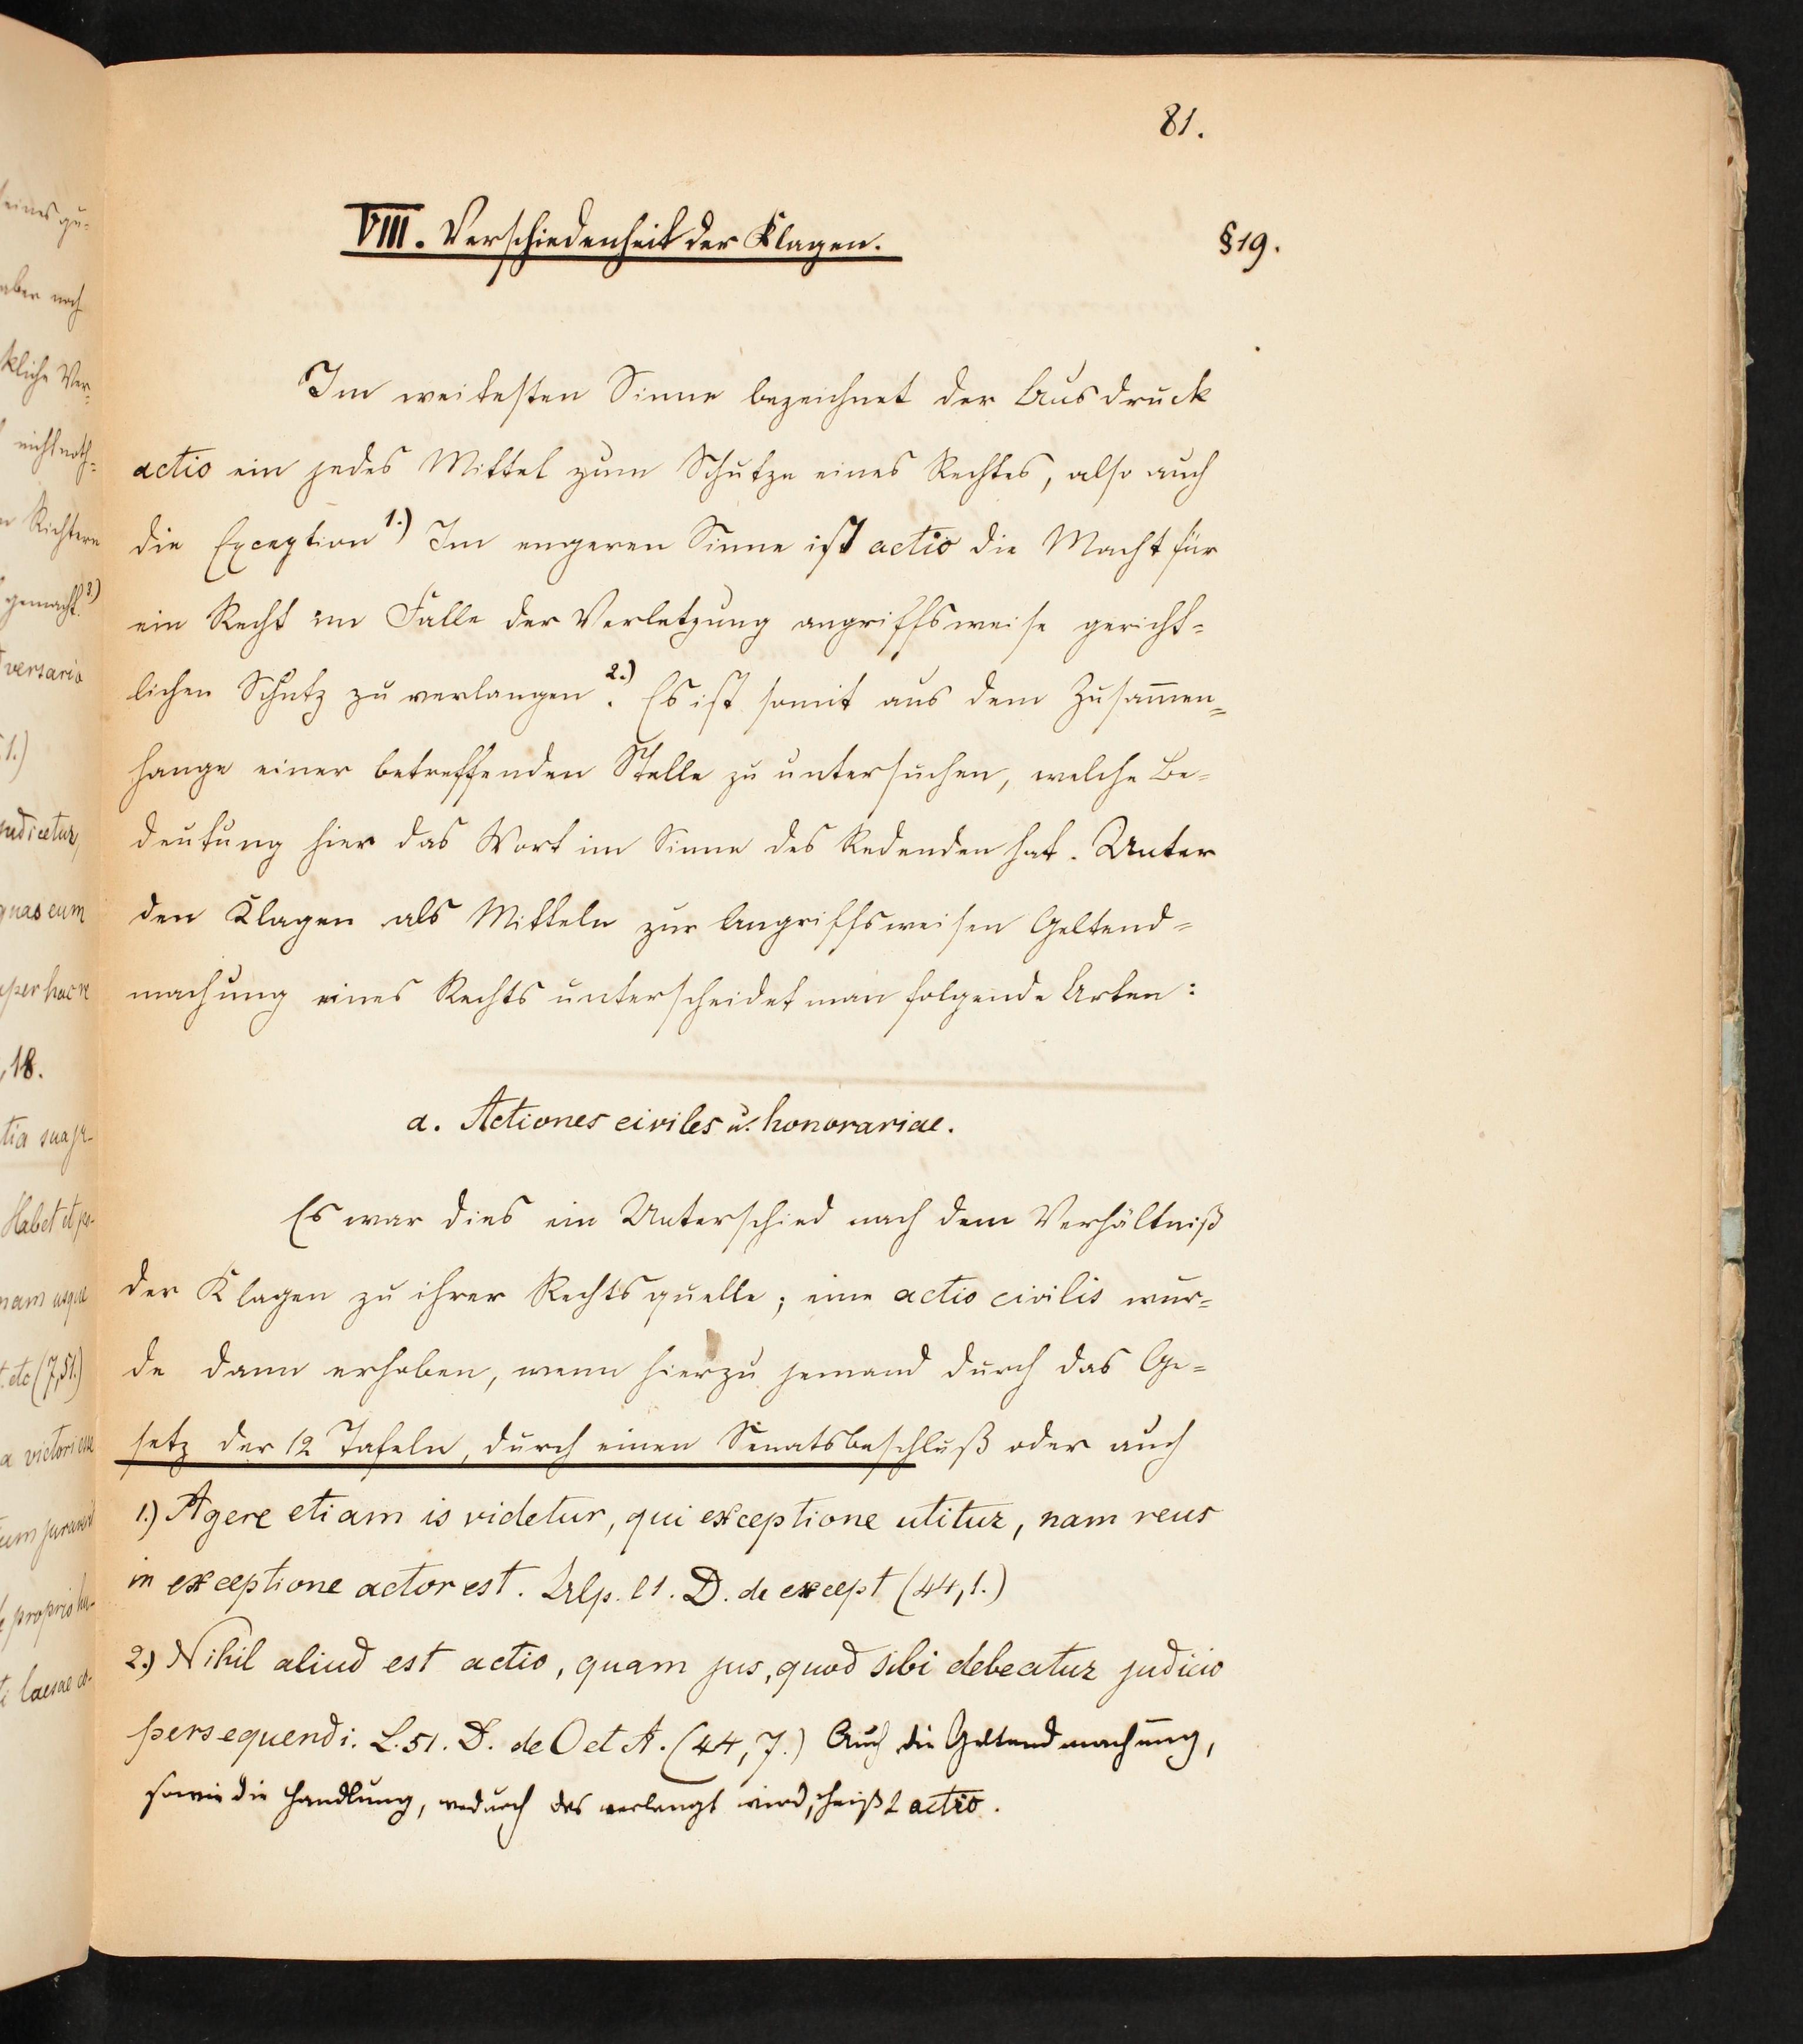 81.
VIII. Verschiedenheit der Klagen.
§ 19.
Im weitesten Sinne bezeichnet der Ausdruck
actio ein jedes Mittel zum Schutze eines Rechtes, also auch
die Exception 1.) Im engeren Sinne ist actio die Macht für
ein Recht im Falle der Verletzung angriffsweise gericht=
lichen Schutz zu verlangen 2.). Es ist somit aus dem Zusam̅en=
hange einer betreffenden Stelle zu untersuchen, welche Be=
deutung hier das Wort im Sinne des Redenden hat. Unter
den Klagen als Mitteln zur Angriffsweisen Geltend=
machung eines Rechts unterscheidet man folgende Arten:
a. Actiones civiles u. honorariae.
Es war dies ein Unterschied nach dem Verhältniß
der Klagen zu ihrer Rechtsquelle; eine actio civilis wur=
de dann erhoben, wenn hierzu jemand durch das Ge=
setz der 12 Tafeln, durch einen Senatsbeschluß oder auch
1.) Agere etiam is videtur, qui exceptione utitur, nam reus
in exceptione actor est. Ulp. l 1. D. de except (44,1.)
2.) Nihil aliud est actio, quam jus, quod sibi debeatur judicio
persequendi. L. 51. D. de O et A. (44,7.) Auch die Geltendmachung,
sowie die Handlung, wodurch das verlangt wird, heißt actio.
eines gu-
aber noch
kliche Ver-
nicht noth=
Richtern
gemacht. 3.)
versario
1.)
judicetur,
quas eum
per hac re
18.
tia sua
Habet et
nam usque
(7,51.)
a victoriam
proprio
laesae